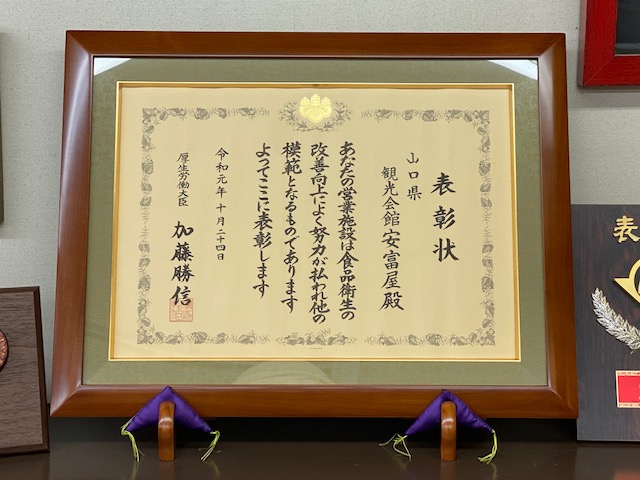 表彰状
山口県
観光会館安富屋殿
あなたの営業施設は食品衛生の
改善向上によく努力が払われ他の
模範となるものであります
よってここに表彰します
令和元年十月二十四日
厚生労働大臣 加藤勝信
表